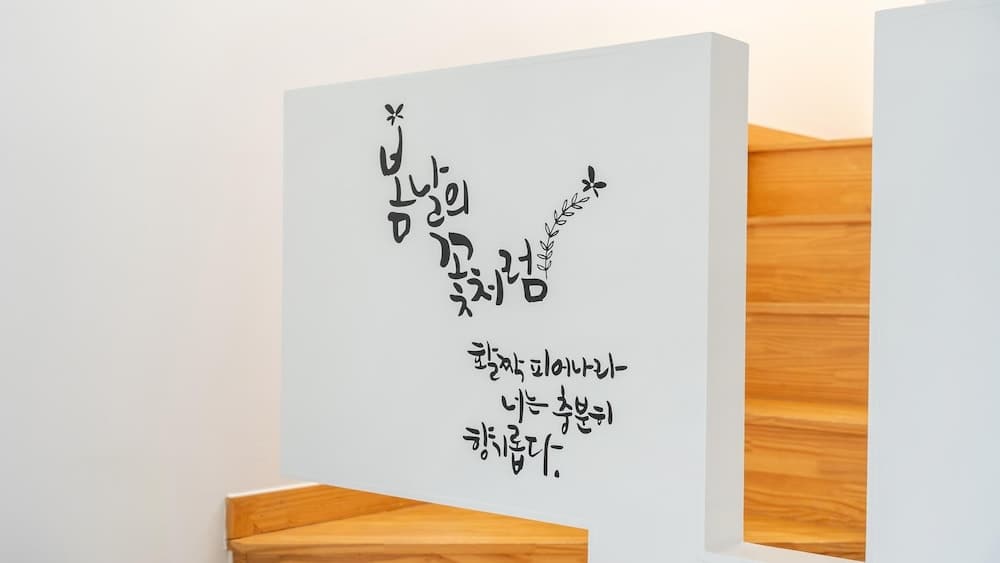 봄날의
꽃처럼
활짝 피어나라
너는 충분히
향기롭다.